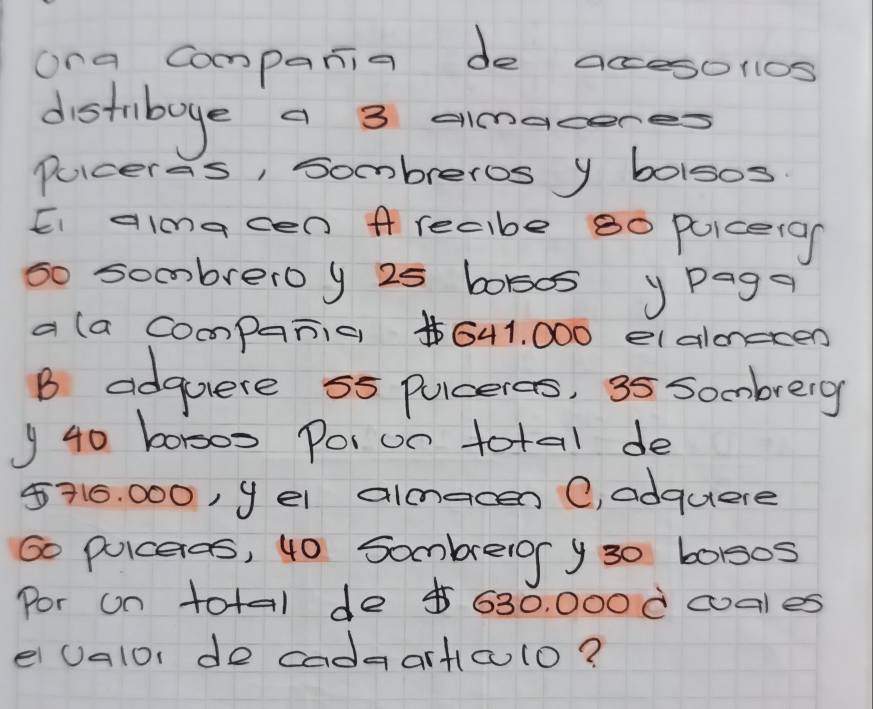 una compañia de accesorios
distribuye a 3 almacenes
pulceras, sombreros y bolsos.
El almacen A recibe 80 pulceras
50 sombrero y 25 bolsos y paga
a la compañia $641.000 el almacen
B adquiere 55 pulceras, 35 sombreros
y 40 bolsos por un total de
$716.000, y el almacen C, adquiere
60 pulceras, 40 sombreros y 30 bolsos
por un total de $ 630.000 ¿ cuales
el valor de cada articulo?